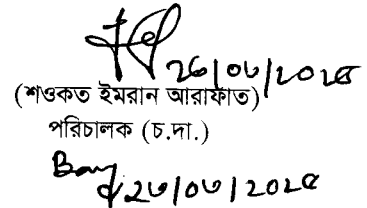 ২৬/০৬/২০২৫
(শওকত ইমরান আরাফাত)
পরিচালক (চ.দা.)
২৬/০৬/২০২৫